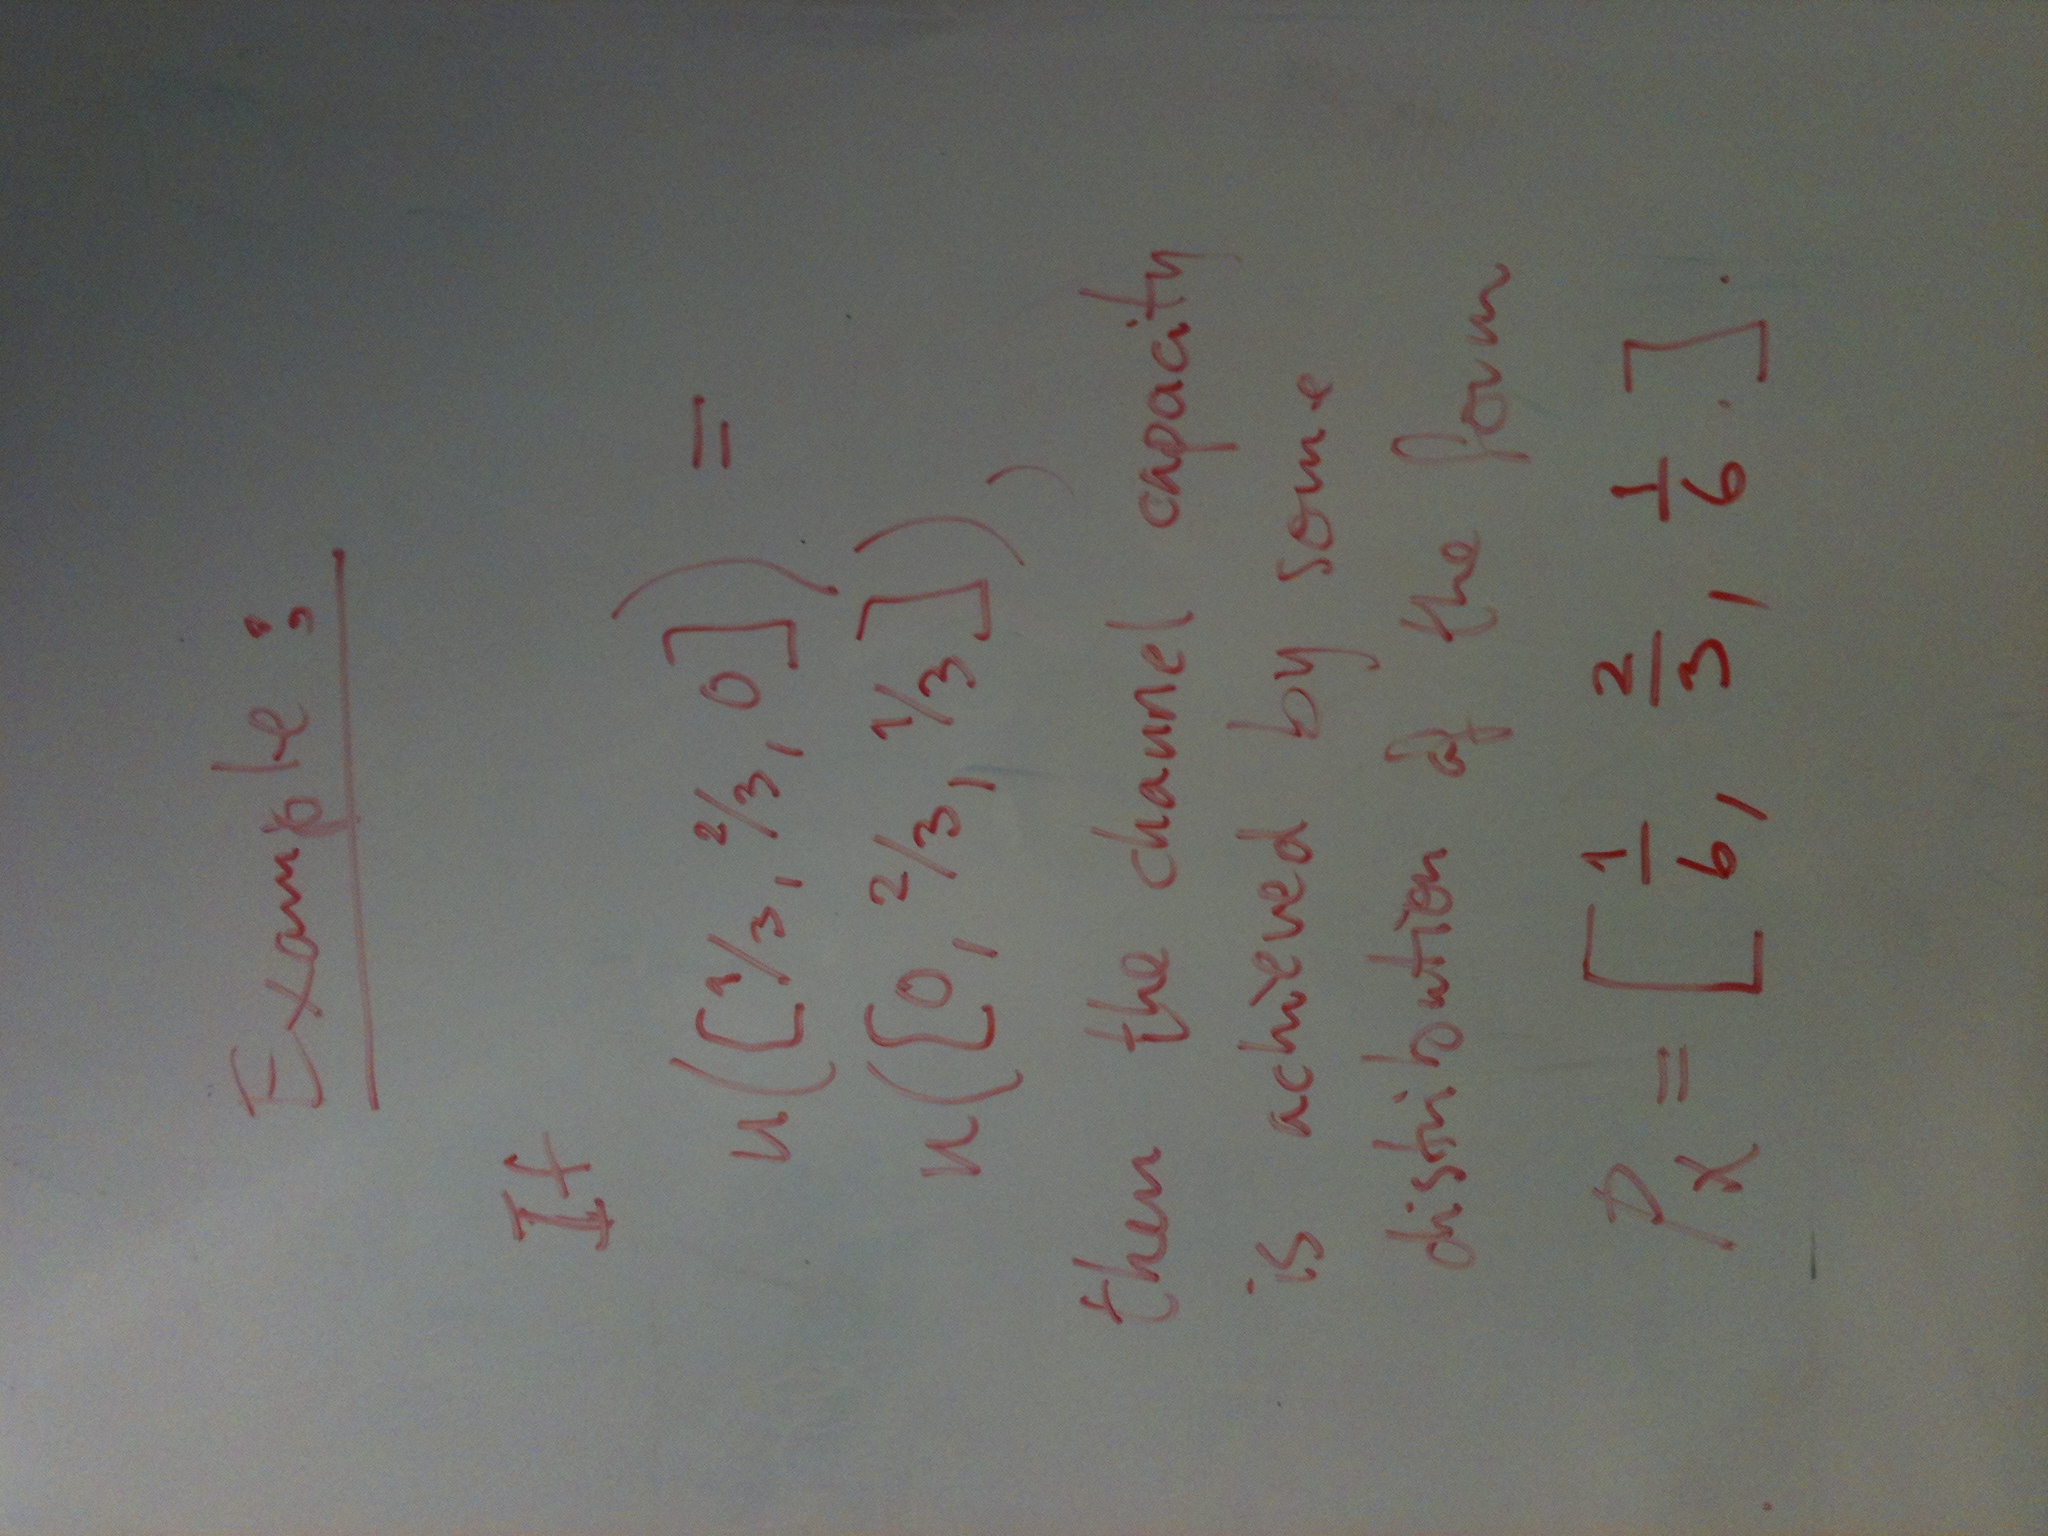 Example:
If
u([1/3, 2/3, 0]) =
u([0, 2/3, 1/3]),
then the channel capacity
is achieved by some
distribution of the form
Px = [1/6, 2/3, 1/6.].